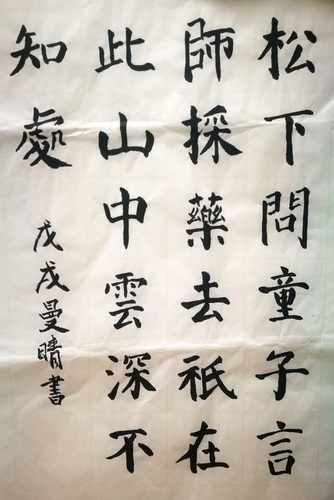 松下問童子言
師採藥去祇在
此山中雲深不
知處
戊戌曼晴書